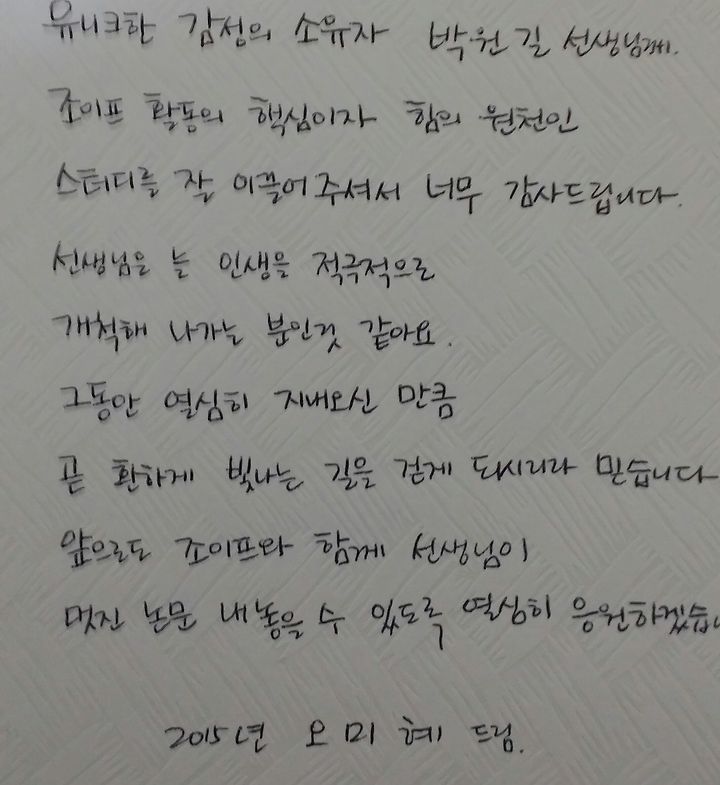 유니크한 감성의 소유자 박원길 선생님께.
조이프 활동의 핵심이자 힘의 원천인
스터디를 잘 이끌어주셔서 너무 감사드립니다.
선생님은 늘 인생을 적극적으로
개척해 나가는 분인것 같아요.
그동안 열심히 지내오신 만큼
곧 환하게 빛나는 길을 걷게 되시리라 믿습니다
앞으로도 조이프와 함께 선생님이
멋진 논문 내놓을 수 있도록 열심히 응원하겠습니
2015년 오미혜 드림.